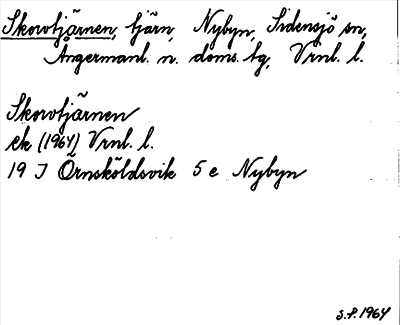 Skorvtjärnen, tjärn, Nybyn, Sidensjö sn,
Ångermanl. n. doms. tg, Vrnl. l.
Skorvtjärnen
ek (1964) Vrnl. l.
19 J Örnsköldsvik 5 e Nybyn
S.P. 1964